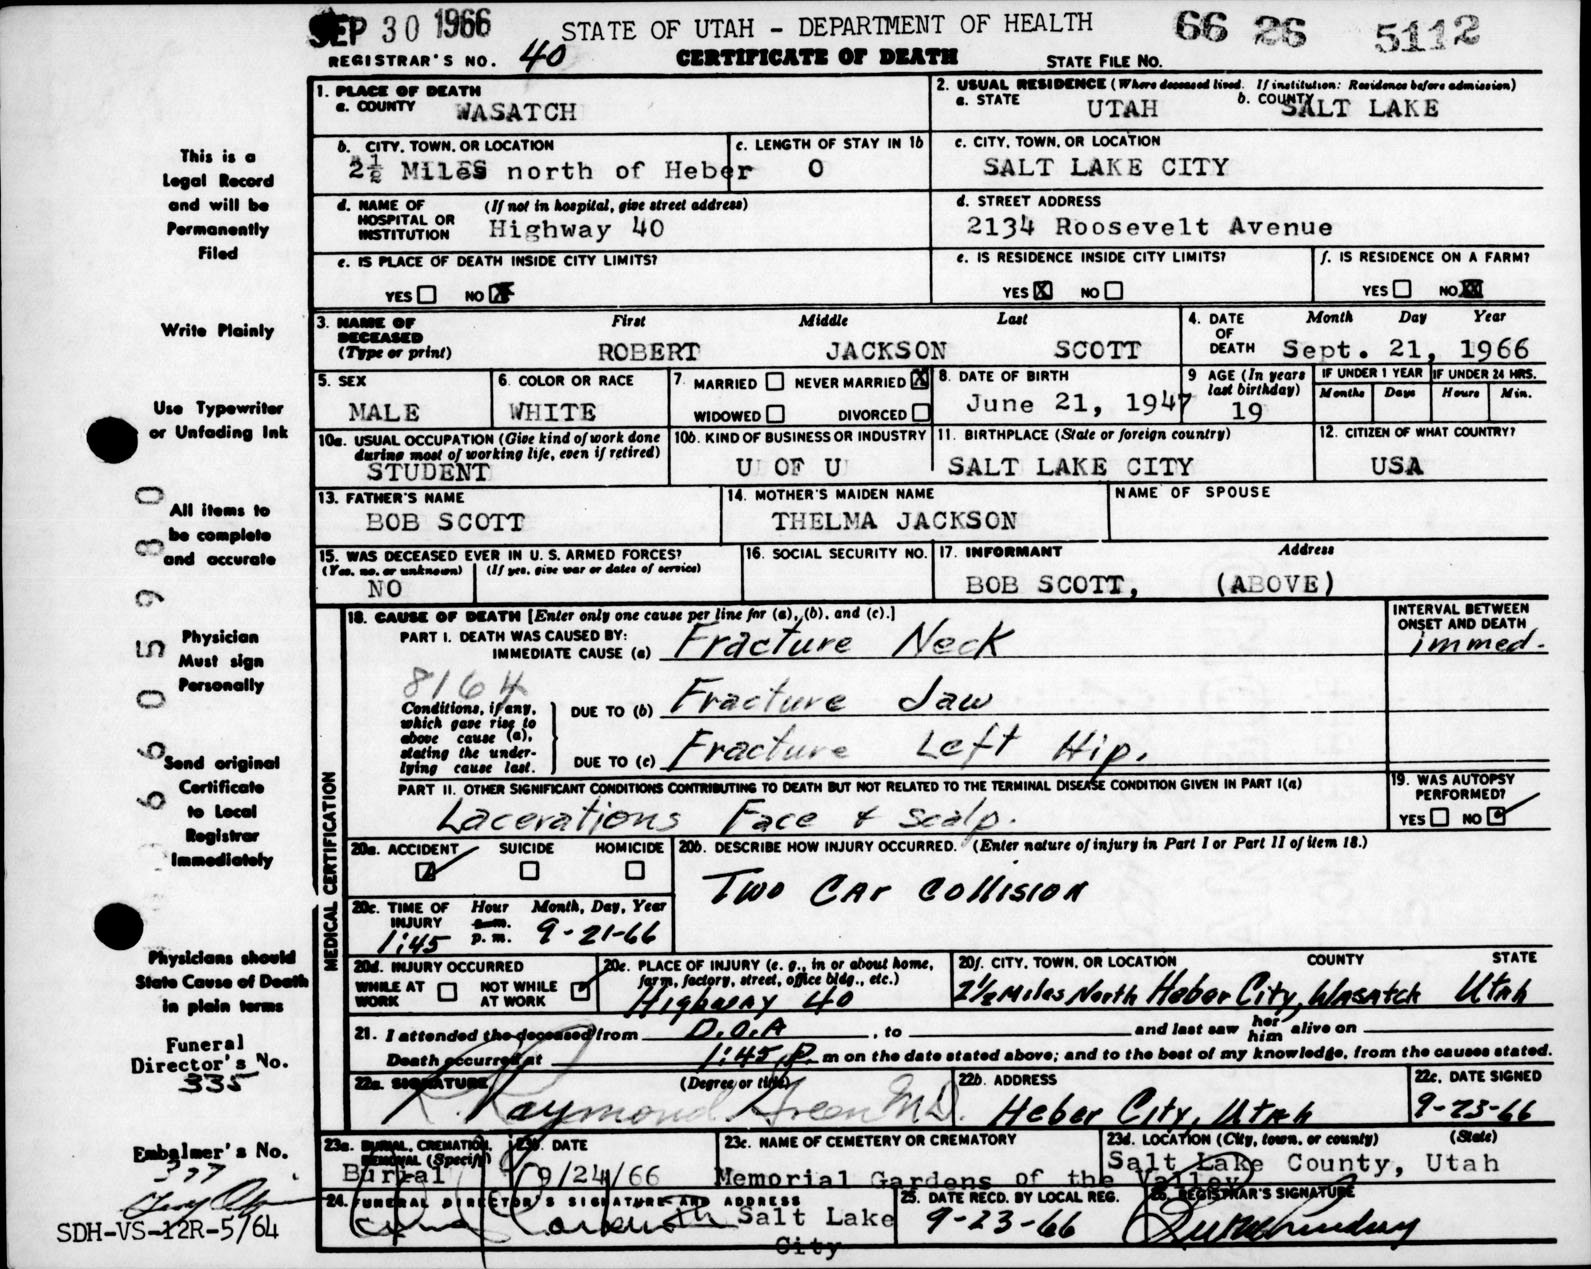 SEP 30 1966
STATE OF UTAH - DEPARTMENT OF HEALTH
66 26 5112
REGISTRAR'S NO. 40
CERTIFICATE OF DEATH
STATE FILE NO.
1. PLACE OF DEATH
a. COUNTY WASATCH
2. USUAL RESIDENCE (Where deceased lived. If institution: Residence before admission)
a. STATE UTAH b. COUNTY SALT LAKE
b. CITY, TOWN, OR LOCATION
2½ Miles north of Heber
c. LENGTH OF STAY IN 1b
0
c. CITY, TOWN, OR LOCATION
SALT LAKE CITY
d. NAME OF HOSPITAL OR INSTITUTION (If not in hospital, give street address)
Highway 40
d. STREET ADDRESS
2134 Roosevelt Avenue
e. IS PLACE OF DEATH INSIDE CITY LIMITS?
YES NO X
e. IS RESIDENCE INSIDE CITY LIMITS?
YES X NO
f. IS RESIDENCE ON A FARM?
YES NO X
3. NAME OF DECEASED (Type or print)
First Middle Last
ROBERT JACKSON SCOTT
4. DATE OF DEATH
Month Day Year
Sept. 21, 1966
5. SEX
MALE
6. COLOR OR RACE
WHITE
7. MARRIED NEVER MARRIED X
WIDOWED DIVORCED
8. DATE OF BIRTH
June 21, 1947
9 AGE (In years last birthday)
19
IF UNDER 1 YEAR IF UNDER 24 HRS.
Months Days Hours Min.
10a. USUAL OCCUPATION (Give kind of work done during most of working life, even if retired)
STUDENT
10b. KIND OF BUSINESS OR INDUSTRY
U OF U
11. BIRTHPLACE (State or foreign country)
SALT LAKE CITY
12. CITIZEN OF WHAT COUNTRY?
USA
13. FATHER'S NAME
BOB SCOTT
14. MOTHER'S MAIDEN NAME
THELMA JACKSON
NAME OF SPOUSE
15. WAS DECEASED EVER IN U. S. ARMED FORCES?
(Yes, no, or unknown) (If yes, give war or dates of service)
NO
16. SOCIAL SECURITY NO.
17. INFORMANT Address
BOB SCOTT, (ABOVE)
18. CAUSE OF DEATH [Enter only one cause per line for (a), (b), and (c).]
PART I. DEATH WAS CAUSED BY:
IMMEDIATE CAUSE (a) Fracture Neck
INTERVAL BETWEEN ONSET AND DEATH
immed.
8164
Conditions, if any, which gave rise to above cause (a), stating the underlying cause last.
DUE TO (b) Fracture Jaw
DUE TO (c) Fracture Left Hip.
PART II. OTHER SIGNIFICANT CONDITIONS CONTRIBUTING TO DEATH BUT NOT RELATED TO THE TERMINAL DISEASE CONDITION GIVEN IN PART I(a)
Lacerations Face & Scalp.
19. WAS AUTOPSY PERFORMED?
YES NO
20a. ACCIDENT SUICIDE HOMICIDE
20b. DESCRIBE HOW INJURY OCCURRED. (Enter nature of injury in Part I or Part II of item 18.)
Two Car Collision
20c. TIME OF INJURY Hour Month, Day, Year
a.m.
p.m.
1:45 9-21-66
20d. INJURY OCCURRED
WHILE AT WORK NOT WHILE AT WORK
20e. PLACE OF INJURY (e. g., in or about home, farm, factory, street, office bldg., etc.)
Highway 40
20f. CITY, TOWN, OR LOCATION COUNTY STATE
2½ Miles North Heber City, Wasatch Utah
21. I attended the deceased from D.O.A , to and last saw her him alive on
Death occurred at 1:45 P. m on the date stated above; and to the best of my knowledge, from the causes stated.
22a. SIGNATURE (Degree or title)
R. Raymond Green M.D.
22b. ADDRESS
Heber City, Utah
22c. DATE SIGNED
9-23-66
23a. BURIAL, CREMATION, REMOVAL (Specify)
Burial
23b. DATE
9/24/66
23c. NAME OF CEMETERY OR CREMATORY
Memorial Gardens of the Valley
23d. LOCATION (City, town, or county) (State)
Salt Lake County, Utah
24. FUNERAL DIRECTOR'S SIGNATURE AND ADDRESS
Salt Lake City
25. DATE RECD. BY LOCAL REG.
9-23-66
26. REGISTRAR'S SIGNATURE
MEDICAL CERTIFICATION
This is a
Legal Record
and will be
Permanently
Filed
Write Plainly
Use Typewriter
or Unfading Ink
All items to
be complete
and accurate
Physician
Must sign
Personally
Send original
Certificate
to Local
Registrar
Immediately
Physicians should
State Cause of Death
in plain terms
Funeral
Director's No.
335
Embalmer's No.
377
SDH-VS-12R-5/64
6 6 0 5 9 8 0